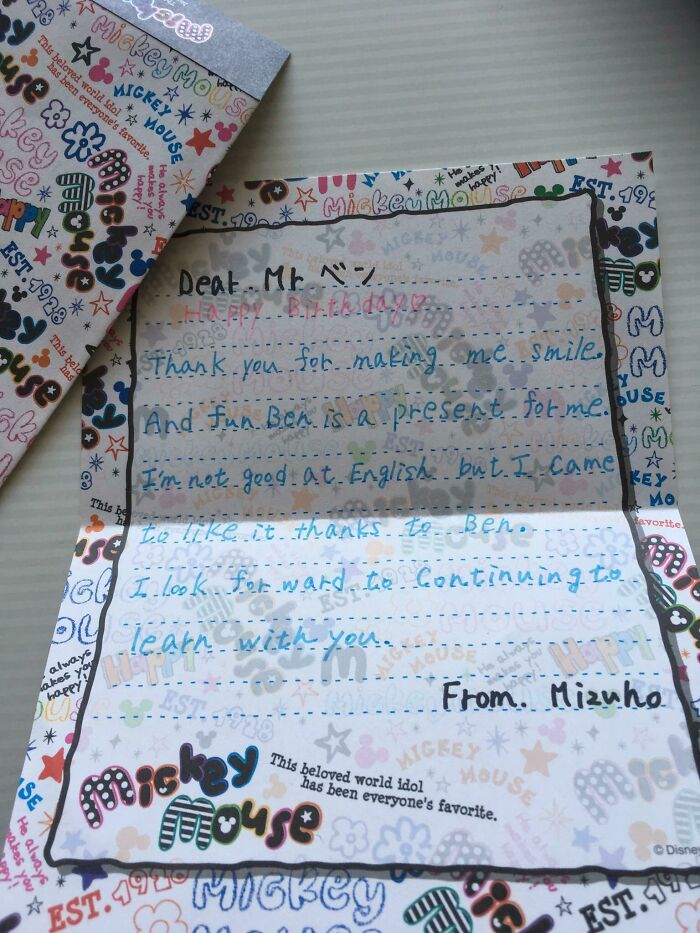 This beloved world idol
has been everyone's favorite.
MICKEY MOUSE
He always
makes you
happy!
Mickey
Mouse
Happy
EST. 1928
EST. 1928
Mickey Mouse
Dear. Mr ベン
Happy Birthday♡
Thank you for making me smile.
And fun Ben is a present for me.
I'm not good at English but I came
to like it thanks to Ben.
I look forward to Continuing to
learn with you.
From. Mizuho
Mickey
Mouse
This beloved world idol
has been everyone's favorite.
© Disney
EST. 1928
Mickey
EST.